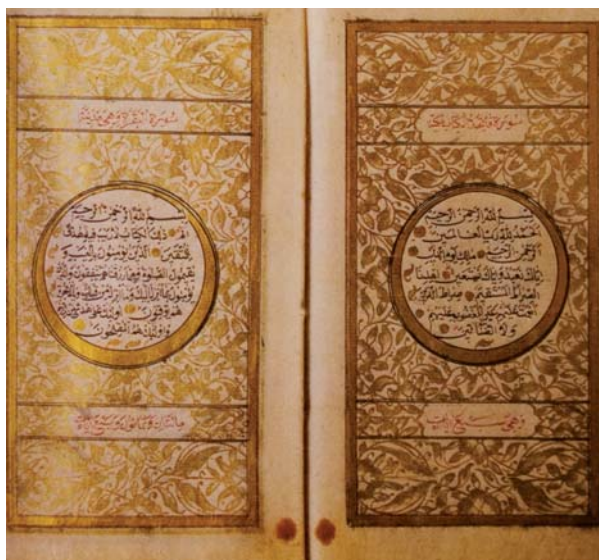 سورة
وهي سبع آيات
بسم الله الرحمن الرحيم
الحمد لله رب العالمين
الرحمن الرحيم ملك يوم الدين
اياك نعبد واياك نستعين اهدنا
الصراط المستقيم صراط الذين
انعمت عليهم غير المغضوب عليهم
ولا الضالين
سورة البقرة وهي مدنية
بسم الله الرحمن الرحيم
الم ذلك الكتاب لا ريب فيه هدى
للمتقين الذين يؤمنون بالغيب و
يقيمون الصلوة ومما رزقناهم ينفقون والذين
يؤمنون بما انزل اليك وما انزل من قبلك وبالاخرة
هم يوقنون اولئك على هدى من ربهم
واولئك هم المفلحون
مائتان وثمانون وسبع